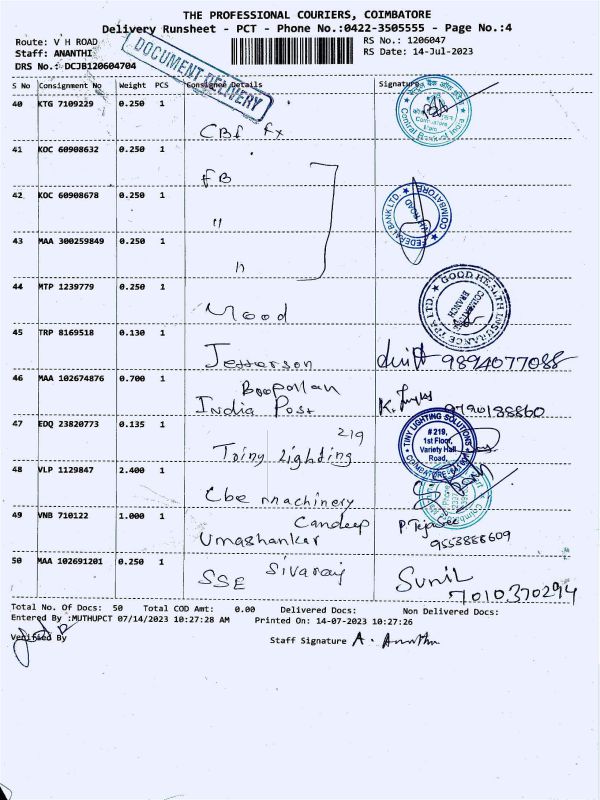 THE PROFESSIONAL COURIERS, COIMBATORE
Delivery Runsheet - PCT - Phone No.:0422-3505555 - Page No.:4
Route: V H ROAD
Staff: ANANTHI
DRS No.: DCJB120604704
RS No.: 1206047
RS Date: 14-Jul-2023
DOCUMENT DELIVERY
S No Consignment No Weight PCS Consignee Details Signature
40 KTG 7109229 0.250 1
41 KOC 60908632 0.250 1 FB
42 KOC 60908678 0.250 1 "
FEDERAL BANK LTD. COIMBATORE
43 MAA 300259849 0.250 1 "
44 MTP 1239779 0.250 1 Mood
GOOD HEALTH INSURANCE TPA LTD. COIMBATORE BRANCH
45 TRP 8169518 0.130 1 Jefferson 9894077088
46 MAA 102674876 0.700 1
India Post 9790188860
47 EDQ 23820773 0.135 1 219
Tainy Lighting
TINY LIGHTING SOLUTIONS
# 219,
1st Floor,
Variety Hall
Road,
48 VLP 1129847 2.400 1 Cbe machinery
49 VNB 710122 1.000 1 Candeep
Umashankar 9553888609
50 MAA 102691201 0.250 1 Sivaraj
SSE Sunil
7010370294
Total No. Of Docs: 50 Total COD Amt: 0.00 Delivered Docs: Non Delivered Docs:
Entered By :MUTHUPCT 07/14/2023 10:27:28 AM Printed On: 14-07-2023 10:27:26
Verified By Staff Signature A.